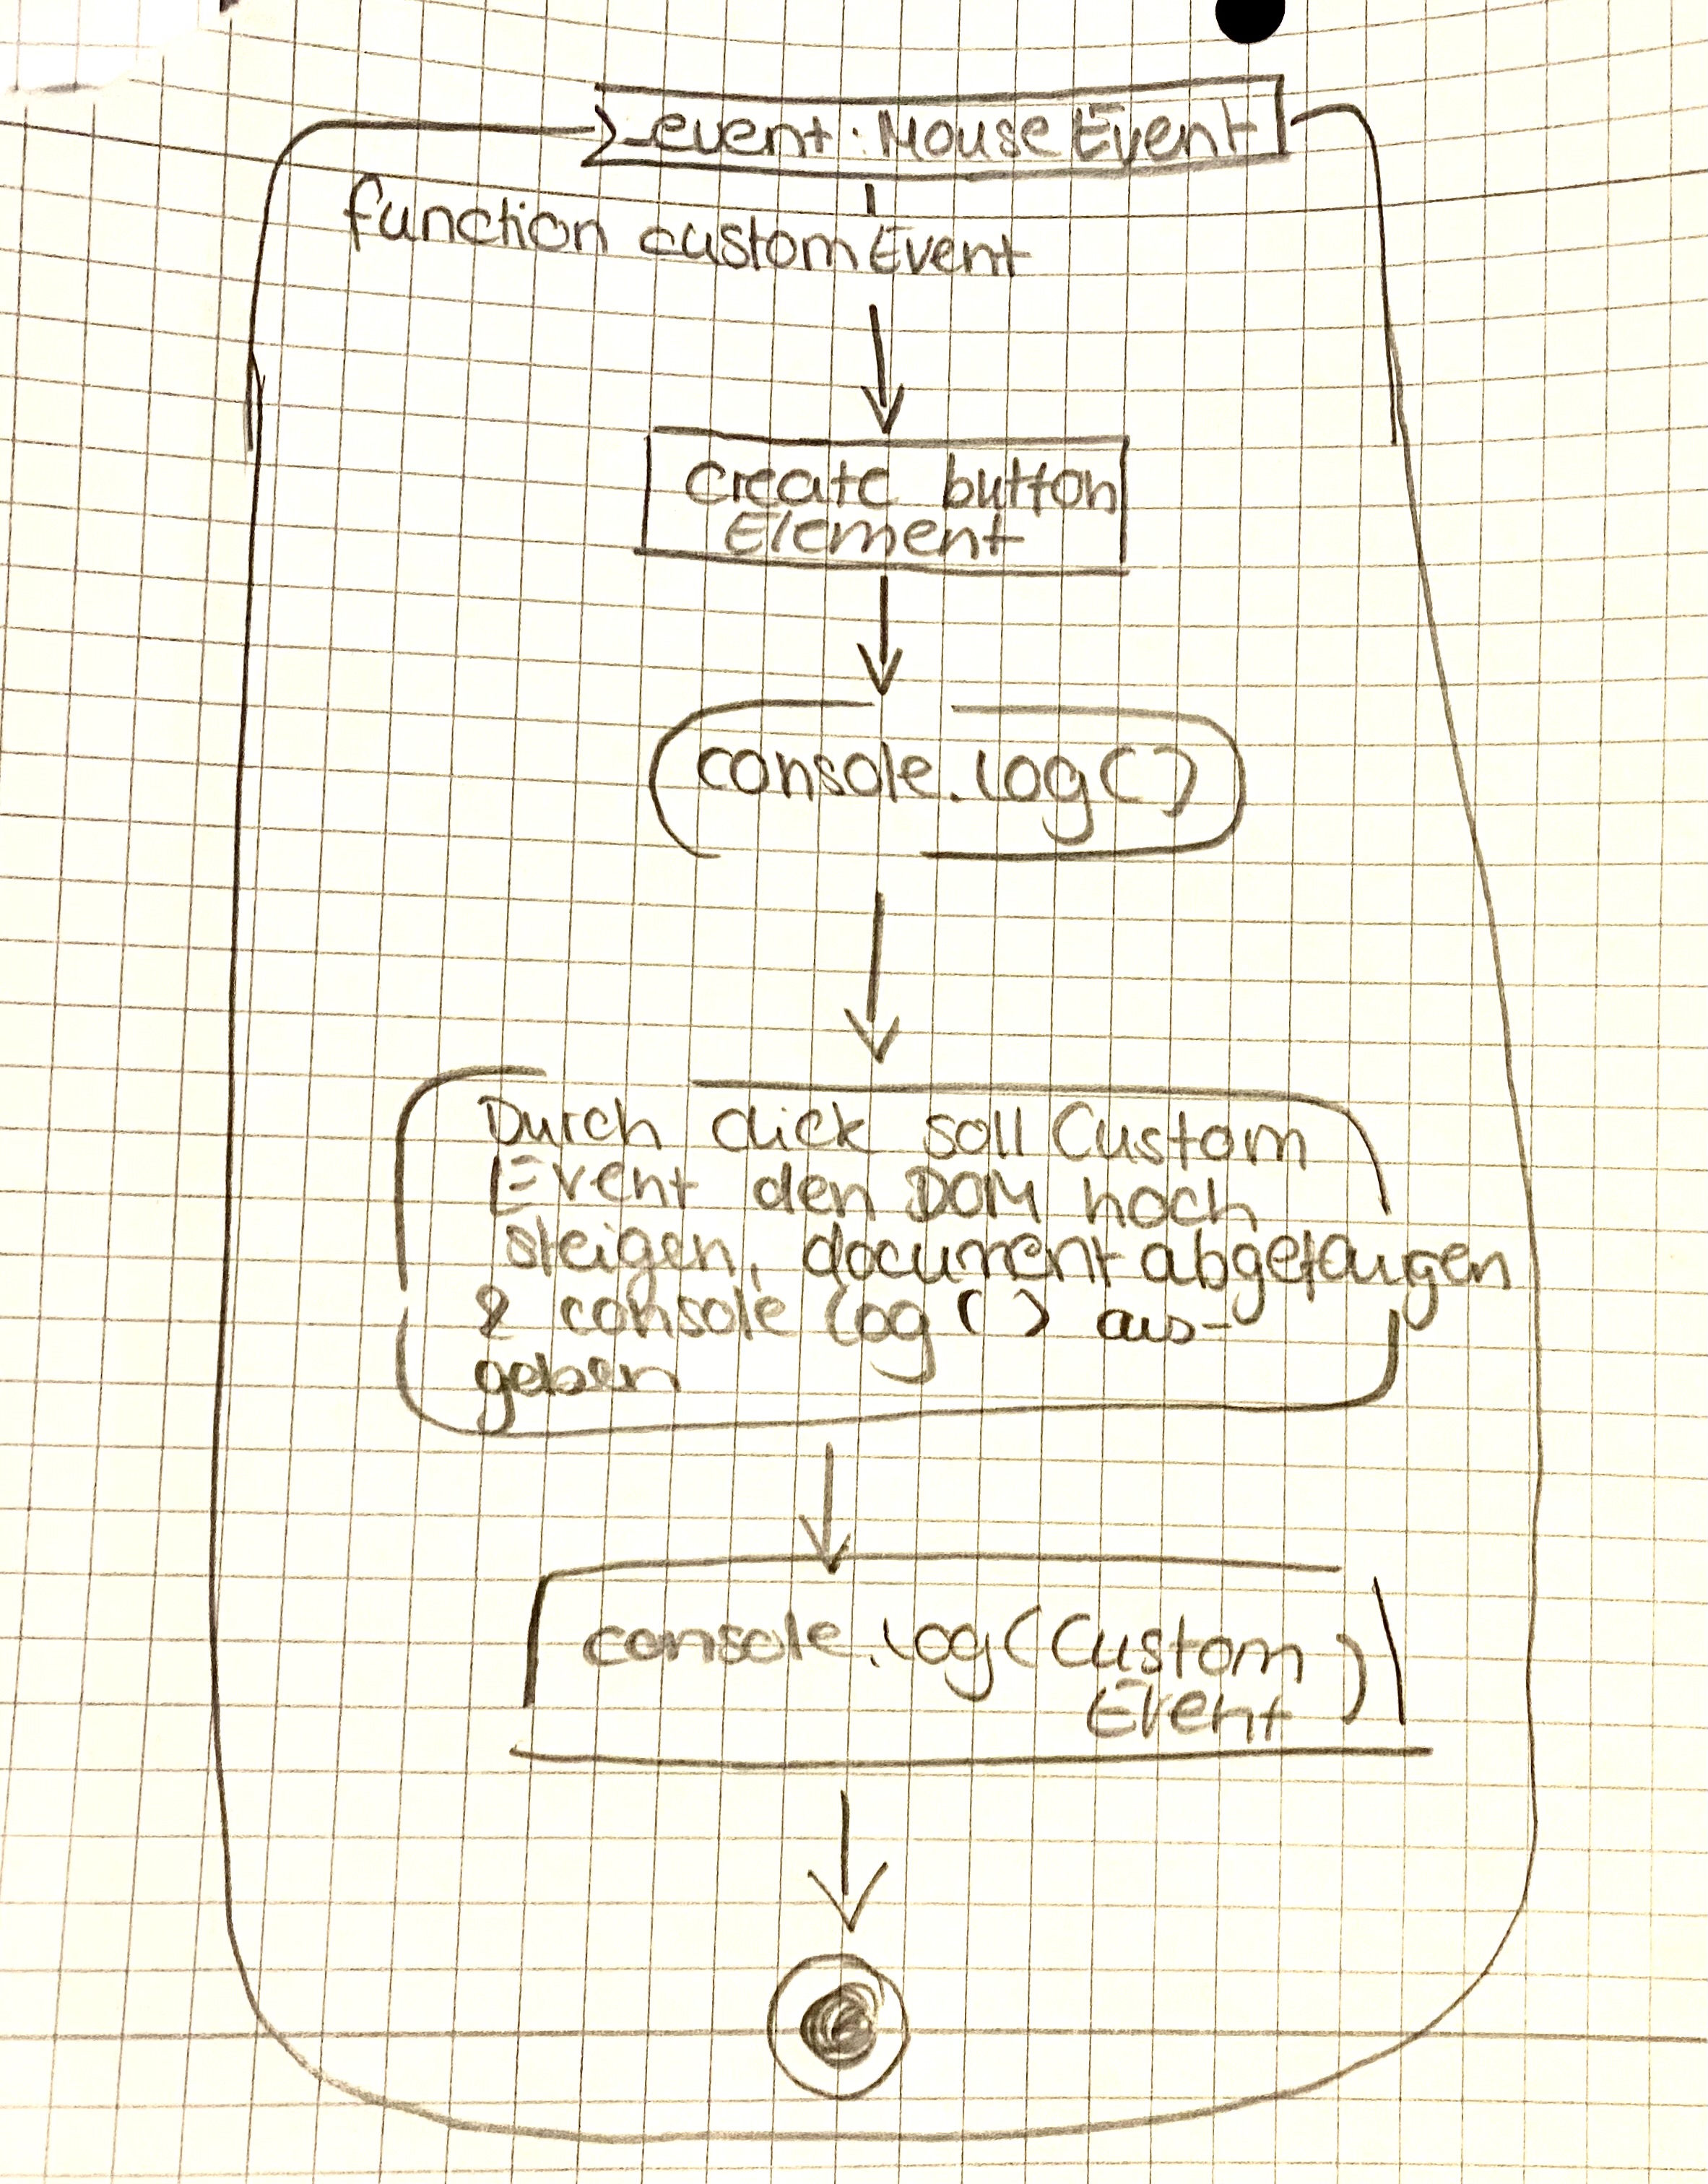 _event : MouseEvent
function customEvent
create button
Element
console.log()
Durch click soll Custom
Event den DOM hoch
steigen, document abgefangen
& console log () aus-
geben
console.log(Custom )
Event